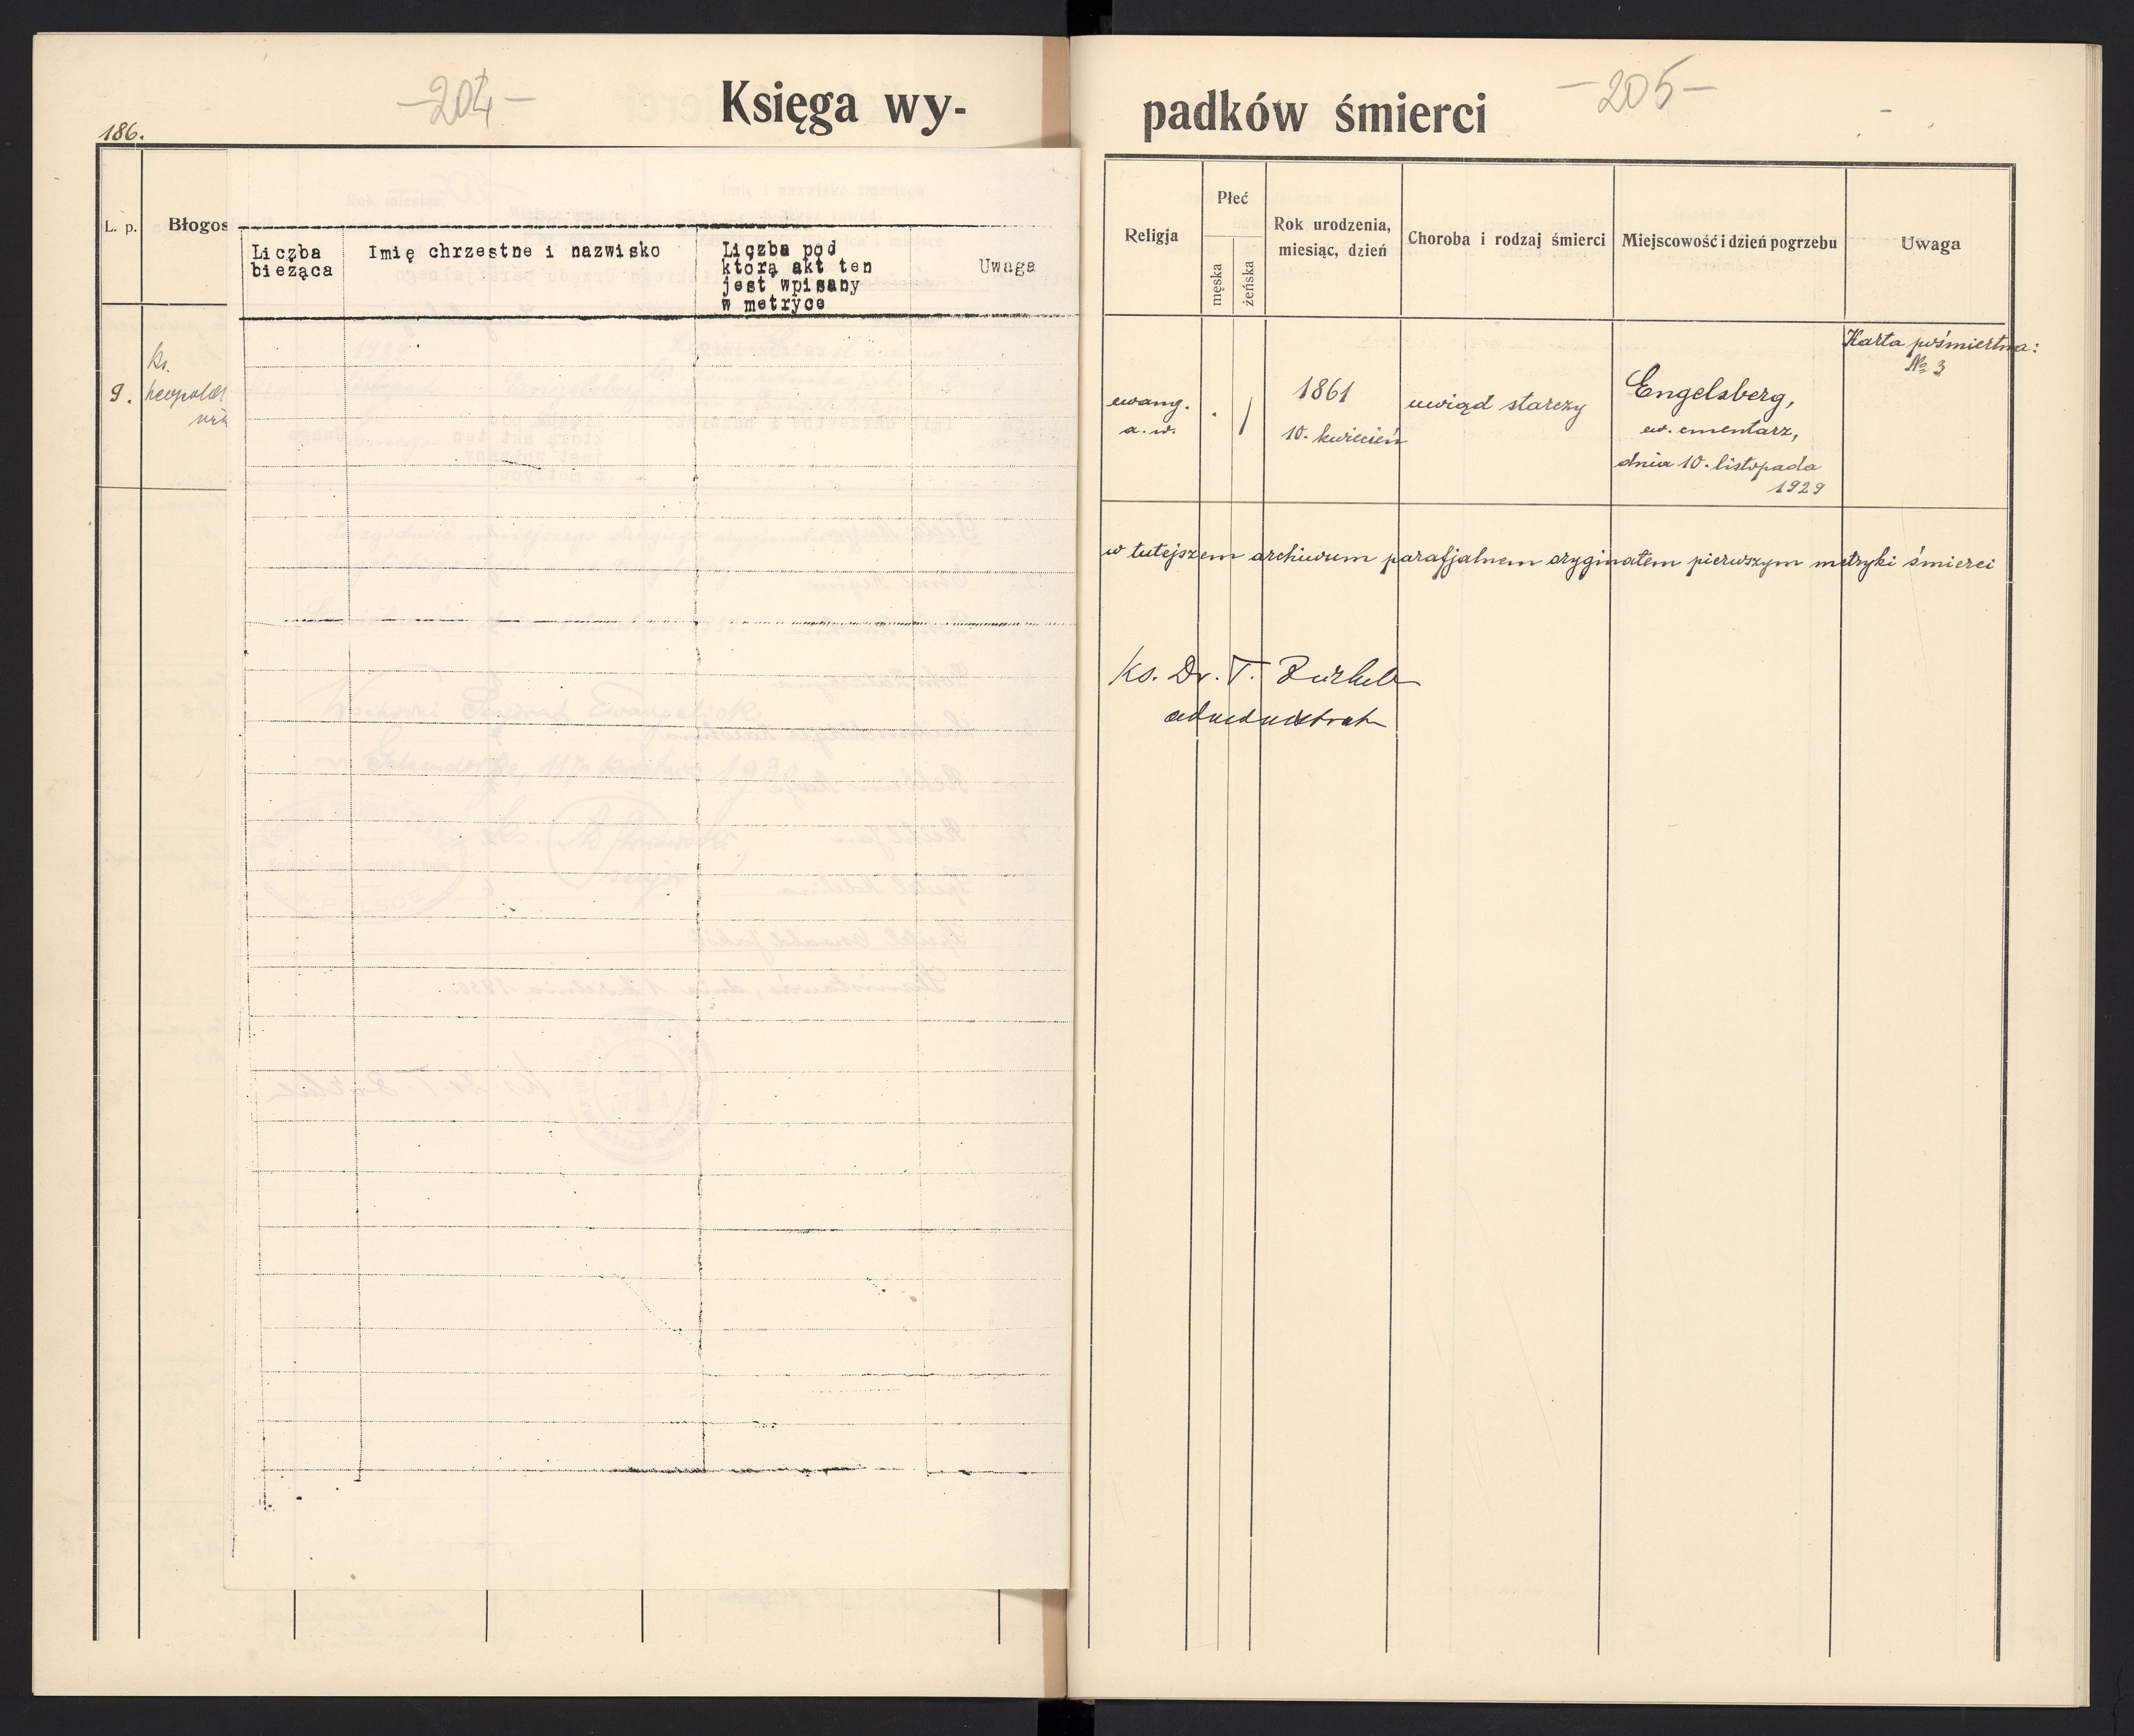 -204-
Księga wy-
186.
L. p.
Błogos
9.
Ks.
Leopold
Liczba
bieżąca
Imię chrzestne i nazwisko
Liczba pod
ktorą akt ten
jest wpisany
w metryce
Uwaga
-205-
padków śmierci
Religja
Płeć
męska
żeńska
Rok urodzenia,
miesiąc, dzień
Choroba i rodzaj śmierci
Miejscowość i dzień pogrzebu
Uwaga
ewang.
a. w.
.
/
1861
10. kwiecień
uwiąd starczy
Engelsberg,
ew. cmentarz,
dnia 10. listopada
1929
Karta pośmiertna:
№ 3
w tutejszem archiwum parafjalnem oryginałem pierwszym metryki śmierci
Ks. Dr. T.